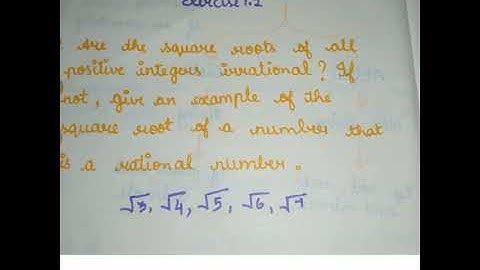 Exercise 1.2
Are the square roots of all
positive integers irrational? If
not, give an example of the
square root of a number that
is a rational number.
√3, √4, √5, √6, √7